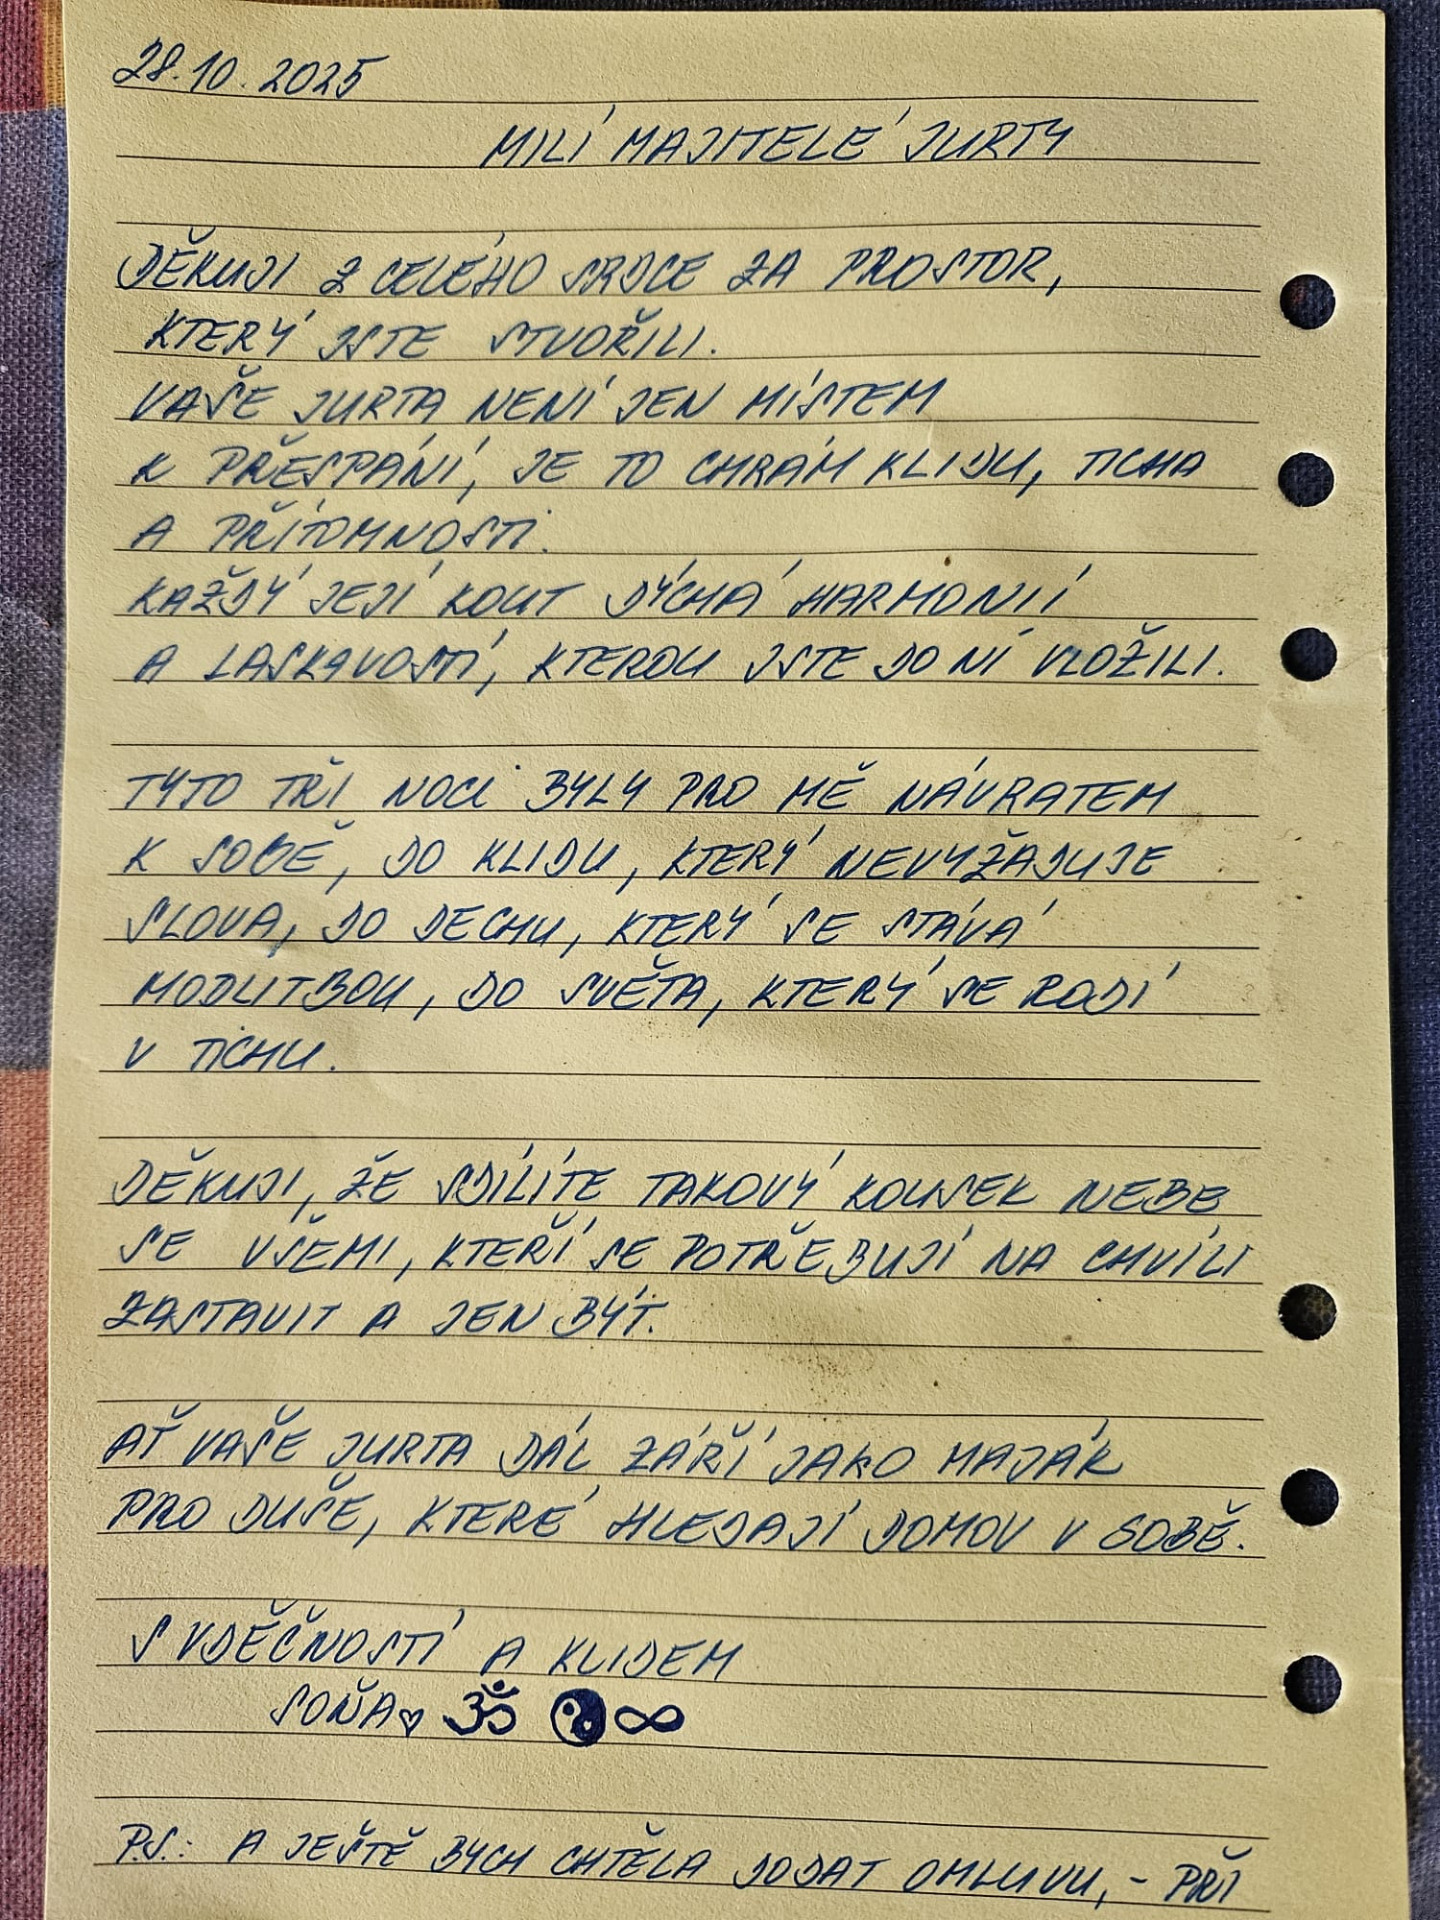 28.10.2025
MILÍ MAJITELÉ JURTY
DĚKUJI Z CELÉHO SRDCE ZA PROSTOR,
KTERÝ JSTE STVOŘILI.
VAŠE JURTA NENÍ JEN MÍSTEM
K PŘESPÁNÍ, JE TO CHRÁM KLIDU, TICHA
A PŘÍTOMNOSTI.
KAŽDÝ JEJÍ KOUT DÝCHÁ HARMONIÍ
A LASKAVOSTÍ, KTEROU JSTE DO NÍ VLOŽILI.
TYTO TŘI NOCI BYLY PRO MĚ NÁVRATEM
K SOBĚ, DO KLIDU, KTERÝ NEVYŽADUJE
SLOVA, DO DECHU, KTERÝ SE STÁVÁ
MODLITBOU, DO SVĚTA, KTERÝ SE RODÍ
V TICHU.
DĚKUJI, ŽE SDÍLÍTE TAKOVÝ KOUSEK NEBE
SE VŠEMI, KTEŘÍ SE POTŘEBUJÍ NA CHVÍLI
ZASTAVIT A JEN BÝT.
AŤ VAŠE JURTA DÁL ZÁŘÍ JAKO MAJÁK
PRO DUŠE, KTERÉ HLEDAJÍ DOMOV V SOBĚ.
S VDĚČNOSTÍ A KLIDEM
SOŇA♡ ॐ ☯ ∞
P.S.: A JEŠTĚ BYCH CHTĚLA DODAT OMLUVU, - PŘI